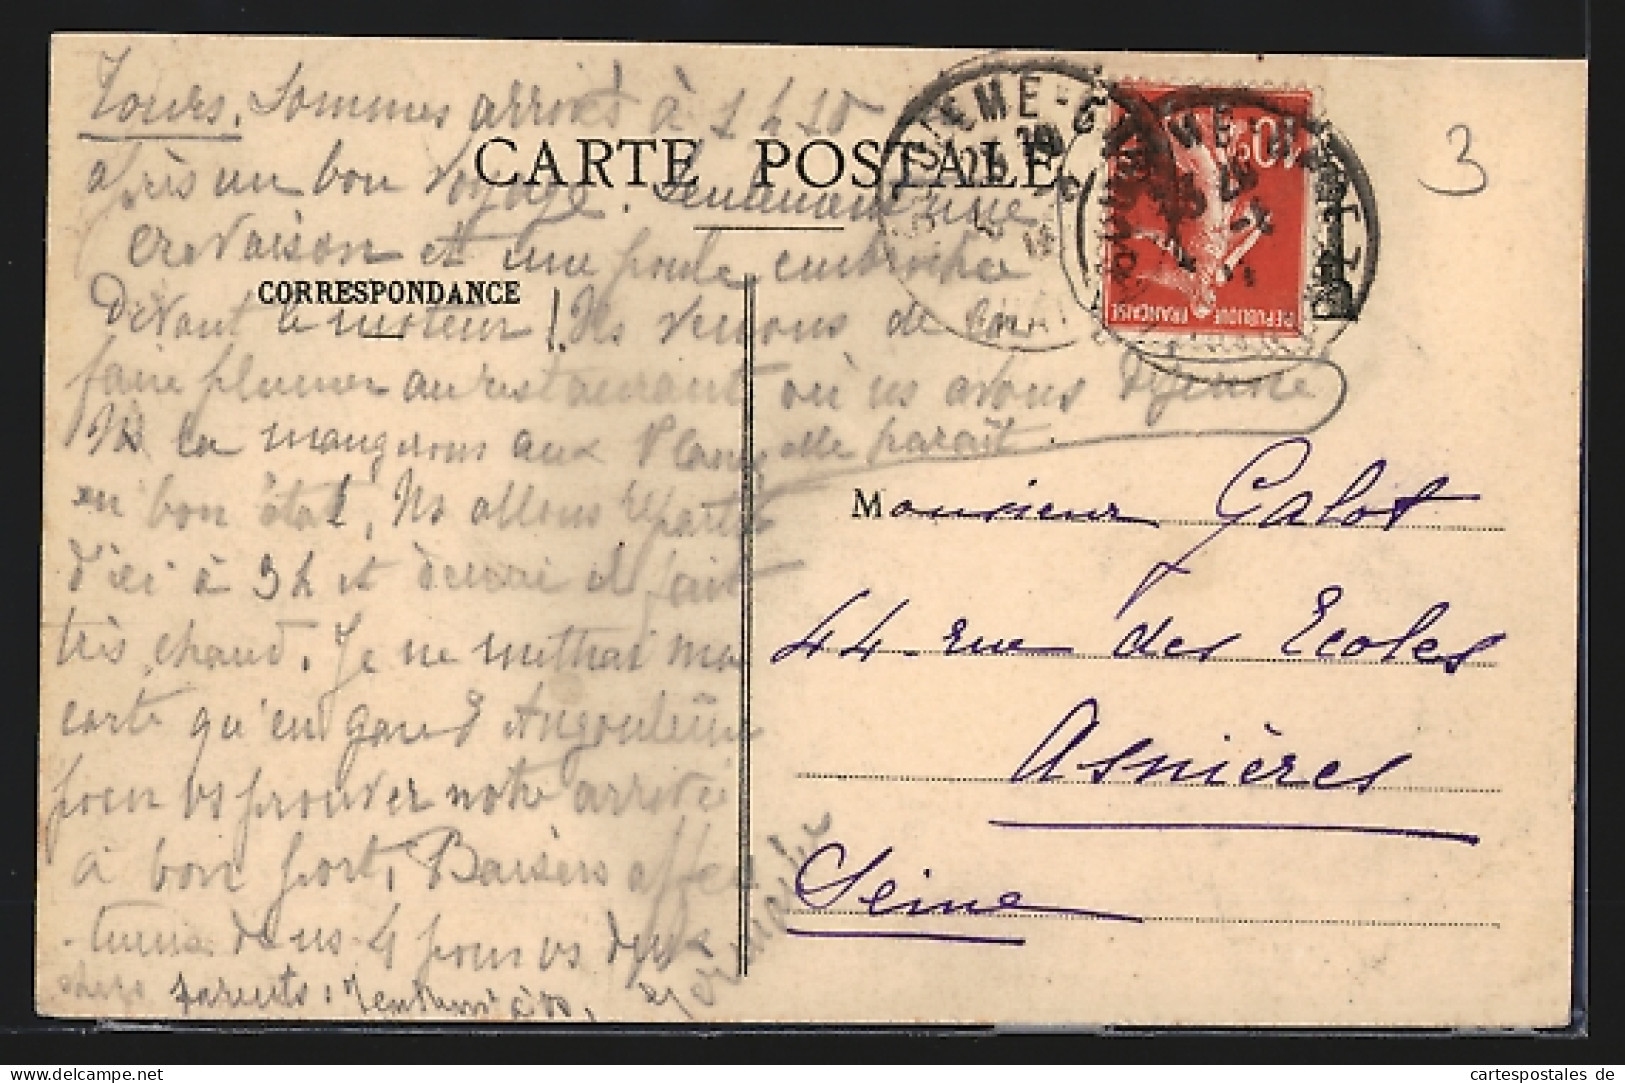 Tours. Sommes arrivés à 1 h 10
après un bon voyage.
crevaison et une poule
devant le moteur! Ns venons de la
faire plumer au restaurant où ns avons déjeuné
Ns la mangerons aux elle paraît
en bon état, Ns allons repartir
d'ici à 3 h et il fait
très chaud. Je ne mettrai ma
carte qu'en gare d'Angoulême
pour vs prouver notre arrivée
à bon port. Baisers affec
tueux de ns 4 pour vs deux
chers parents.
Germaine
CARTE POSTALE
CORRESPONDANCE
3
10c
REPUBLIQUE FRANÇAISE
Monsieur Galot
44 rue des Ecoles
Asnières
Seine
cartespostales de